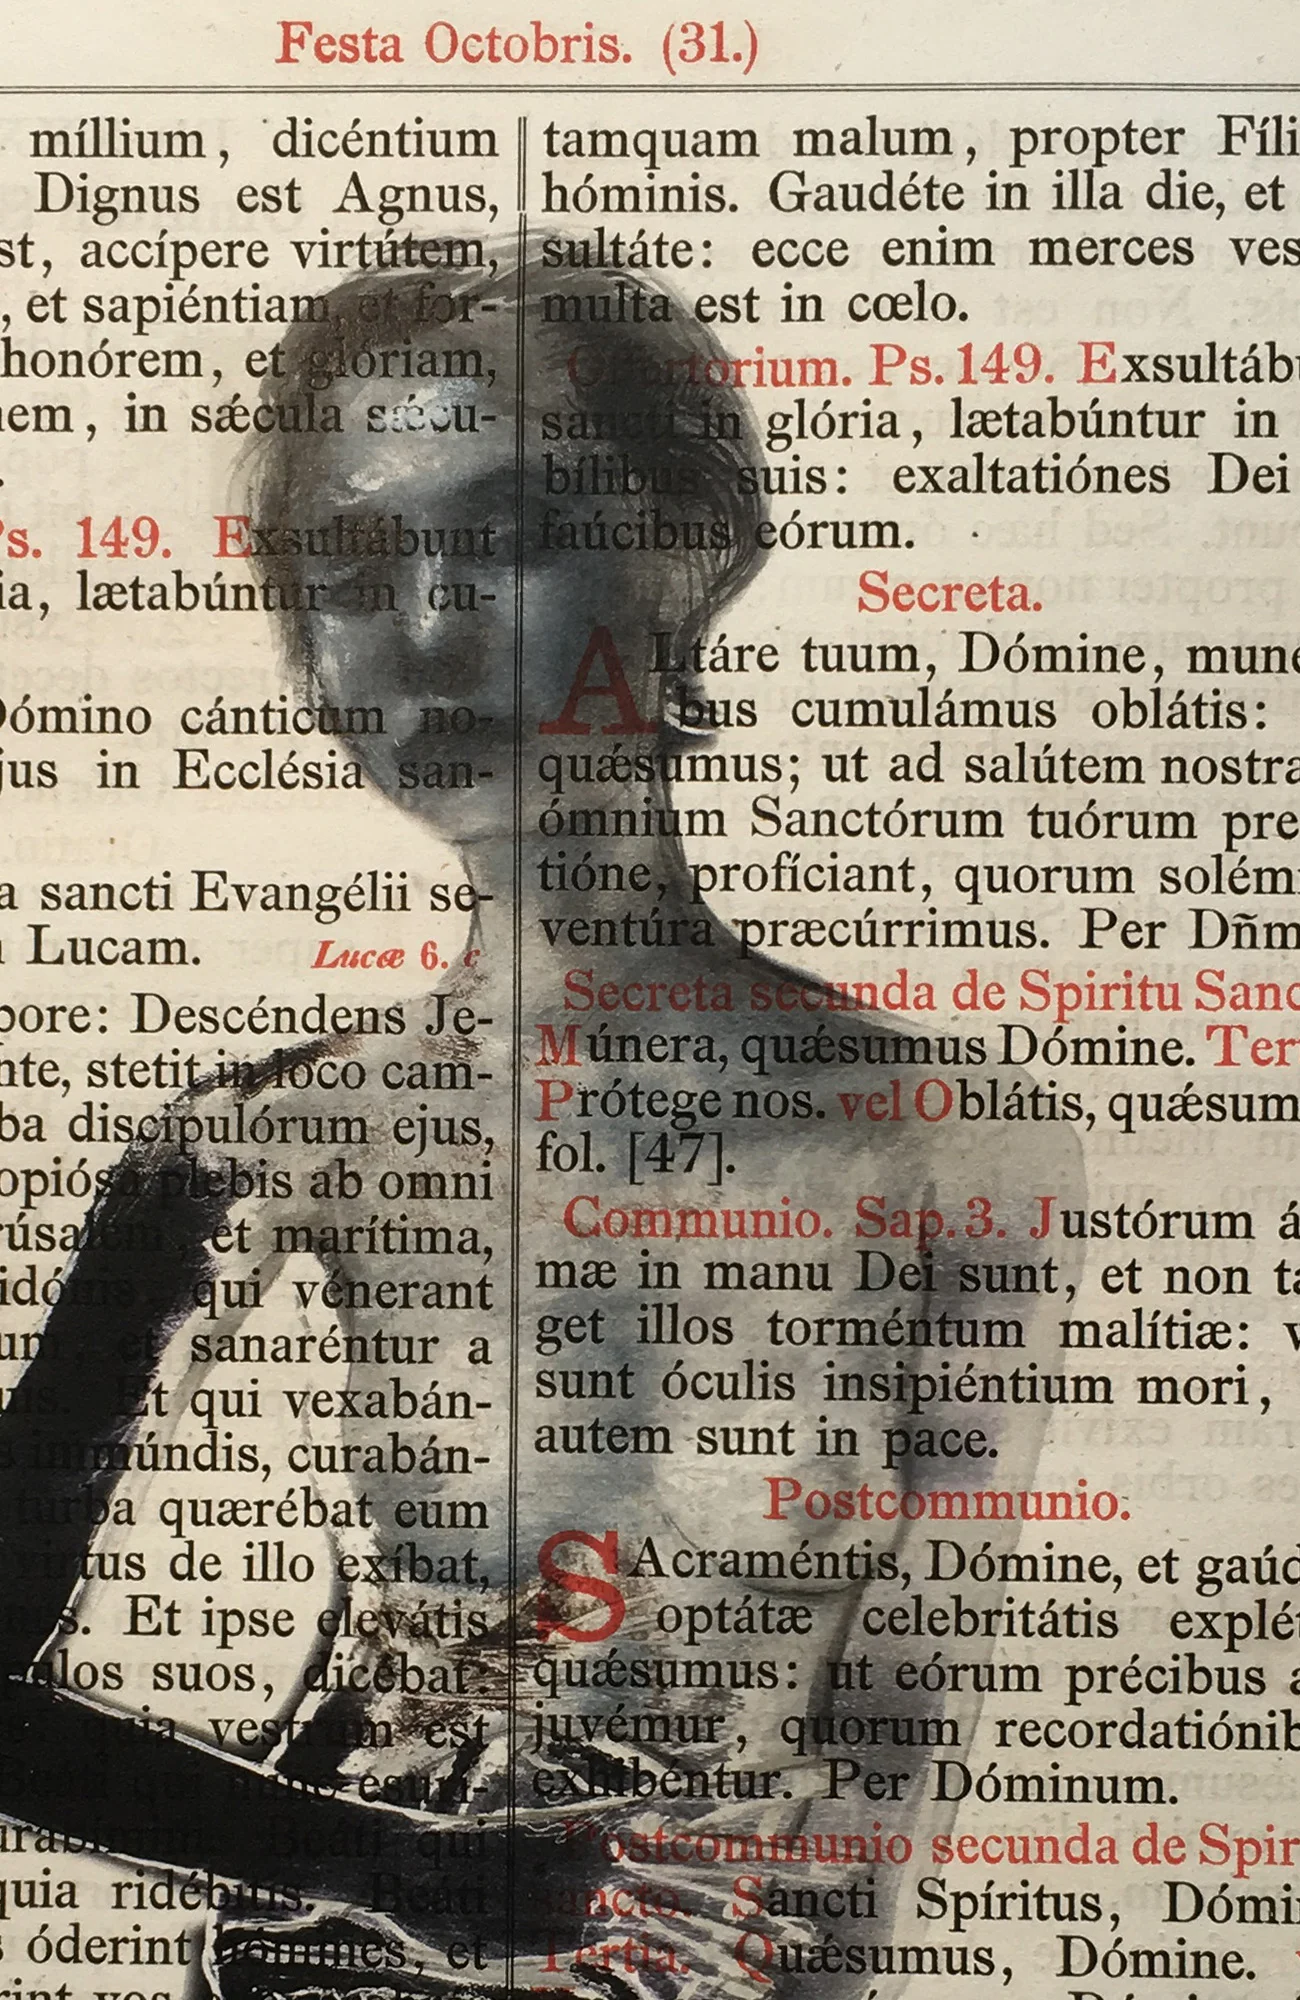 Festa Octobris. (31.)
míllium, dicéntium
Dignus est Agnus,
st, accípere virtútem,
, et sapiéntiam, et for-
honórem, et glóriam,
nem, in sǽcula sǽcu-
Ps. 149. Exsultábunt
ia, lætabúntur in cu-
Dómino cánticum no-
jus in Ecclésia san-
a sancti Evangélii se-
Lucam. Lucæ 6. c
pore: Descéndens Je-
nte, stetit in loco cam-
ba discipulórum ejus,
opiósa plebis ab omni
rúsalem, et marítima,
idónis, qui vénerant
um, et sanaréntur a
uis. Et qui vexabán-
s immúndis, curabán-
turba quærébat eum
virtus de illo exíbat,
s. Et ipse elevátis
ulos suos, dicébat:
quia vestrum est
Beáti qui nunc esurí-
urabímini. Beáti qui
quia ridébitis. Beáti
s óderint hómines, et
rint vos
tamquam malum, propter Fíli
hóminis. Gaudéte in illa die, et
sultáte: ecce enim merces ves
multa est in cœlo.
Offertorium. Ps. 149. Exsultábu
sancti in glória, lætabúntur in
bílibus suis: exaltatiónes Dei
faúcibus eórum.
Secreta.
ALtáre tuum, Dómine, mune
bus cumulámus oblátis:
quǽsumus; ut ad salútem nostra
ómnium Sanctórum tuórum pre
tióne, profíciant, quorum solém
ventúra præcúrrimus. Per Dñm
Secreta secunda de Spiritu Sanc
Múnera, quǽsumus Dómine. Ter
Prótege nos. vel Oblátis, quǽsum
fol. [47].
Communio. Sap. 3. Justórum á
mæ in manu Dei sunt, et non ta
get illos torméntum malítiæ: v
sunt óculis insipiéntium mori,
autem sunt in pace.
Postcommunio.
SAcraméntis, Dómine, et gaúd
optátæ celebritátis explé
quǽsumus: ut eórum précibus a
juvémur, quorum recordatiónib
exhibéntur. Per Dóminum.
Postcommunio secunda de Spir
sancto. Sancti Spíritus, Dómi
Tertia. Quǽsumus, Dómine.